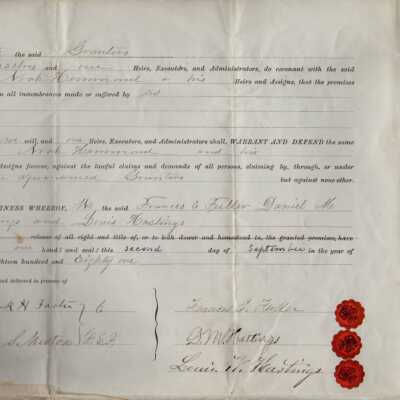 the said Grantors
and our Heirs, Executors, and Administrators, do covenant with the said
Noah Hammond & his Heirs and Assigns, that the premises
m all incumbrances made or suffered by us
we will, and our Heirs, Executors, and Administrators shall, WARRANT AND DEFEND the same
Noah Hammond and his
ssigns forever, against the lawful claims and demands of all persons, claiming by, through, or under
Grantors but against none other.
NESS WHEREOF, We the said Frances Fuller Daniel M.
ngs and Louis Hastings
release of all right and title of, or to both dower and homestead in, the granted premises, have
our hand and seal this second day of September in the year of
ghteen hundred and Eighty one
ed in presence of
D. M. Hastings
Louis W. Hastings